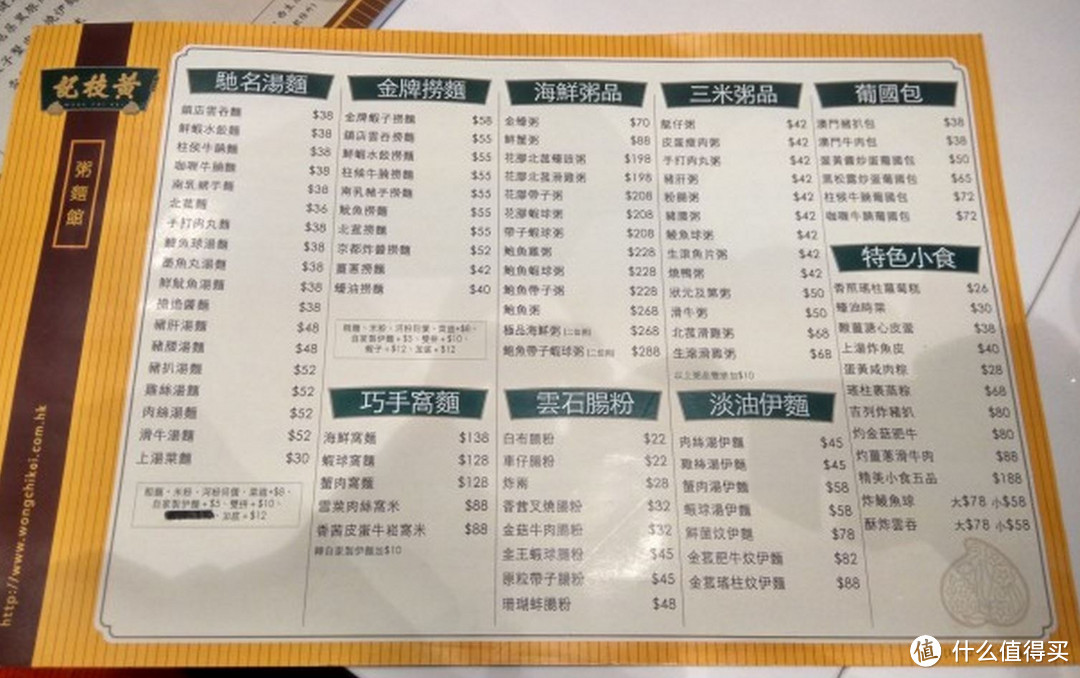 記枝黃
WONG CHI KEI
粥麵館
http://www.wongchikei.com.hk
馳名湯麵
鎮店雲吞麵 $38
鮮蝦水餃麵 $38
柱侯牛腩麵 $38
咖喱牛腩麵 $38
南乳豬手麵 $38
北菇麵 $36
手打肉丸麵 $38
鯪魚球湯麵 $38
墨魚丸湯麵 $38
鮮魷魚湯麵 $38
$38
豬肝湯麵 $48
豬腰湯麵 $48
豬扒湯麵 $52
雞絲湯麵 $52
肉絲湯麵 $52
滑牛湯麵 $52
上湯菜麵 $30
粗麵、米粉、河粉同價，菜遠+$8、
自家製伊麵+$5、雙拼+$10、
、加底+$12
金牌撈麵
金牌蝦子撈麵 $58
鎮店雲吞撈麵 $55
鮮蝦水餃撈麵 $55
柱候牛腩撈麵 $55
南乳豬手撈麵 $55
魷魚撈麵 $55
北菇撈麵 $55
京都炸醬撈麵 $52
薑蔥撈麵 $42
蠔油撈麵 $40
粗麵、米粉、河粉同價，菜遠+$8、
自家製伊麵+$5、雙拼+$10、
蝦子+$12、加底+$12
海鮮粥品
金蠔粥 $70
鮮蟹粥 $88
花膠北菇蠔豉粥 $198
花膠北菇滑雞粥 $198
花膠帶子粥 $208
花膠蝦球粥 $208
帶子蝦球粥 $208
鮑魚雞粥 $228
鮑魚蝦球粥 $228
鮑魚帶子粥 $228
鮑魚粥 $268
極品海鮮粥(二位用) $268
鮑魚帶子蝦球粥(二位用) $288
三米粥品
艇仔粥 $42
皮蛋瘦肉粥 $42
手打肉丸粥 $42
豬肝粥 $42
粉腸粥 $42
豬腰粥 $42
鯪魚球粥 $42
生滾魚片粥 $42
燒鴨粥 $42
狀元及第粥 $50
滑牛粥 $50
北菇滑雞粥 $68
生滾滑雞粥 $68
以上粥品雙拼加$10
葡國包
澳門豬扒包 $38
澳門牛肉包 $38
蛋黃醬炒蛋葡國包 $50
黑松露炒蛋葡國包 $65
柱候牛腩葡國包 $72
咖喱牛腩葡國包 $72
特色小食
香煎瑤柱蘿蔔糕 $26
蠔油時菜 $30
酸薑溏心皮蛋 $38
上湯炸魚皮 $40
蛋黃咸肉粽 $28
瑤柱裹蒸粽 $68
吉列炸豬扒 $80
灼金菇肥牛 $80
灼薑蔥滑牛肉 $88
精美小食五品 $188
炸鯪魚球 大$78 小$58
酥炸雲吞 大$78 小$58
巧手窩麵
海鮮窩麵 $138
蝦球窩麵 $128
蟹肉窩麵 $128
雪菜肉絲窩米 $88
香茜皮蛋牛崧窩米 $88
轉自家製伊麵加$10
雲石腸粉
白布腸粉 $22
車仔腸粉 $22
炸兩 $28
香茜叉燒腸粉 $32
金菇牛肉腸粉 $32
韭王蝦球腸粉 $45
原粒帶子腸粉 $45
珊瑚蚌腸粉 $48
淡油伊麵
肉絲湯伊麵 $45
雞絲湯伊麵 $45
蟹肉湯伊麵 $58
蝦球湯伊麵 $58
鮮菌炆伊麵 $78
金菇肥牛炆伊麵 $82
金菇瑤柱炆伊麵 $88
值 什么值得买